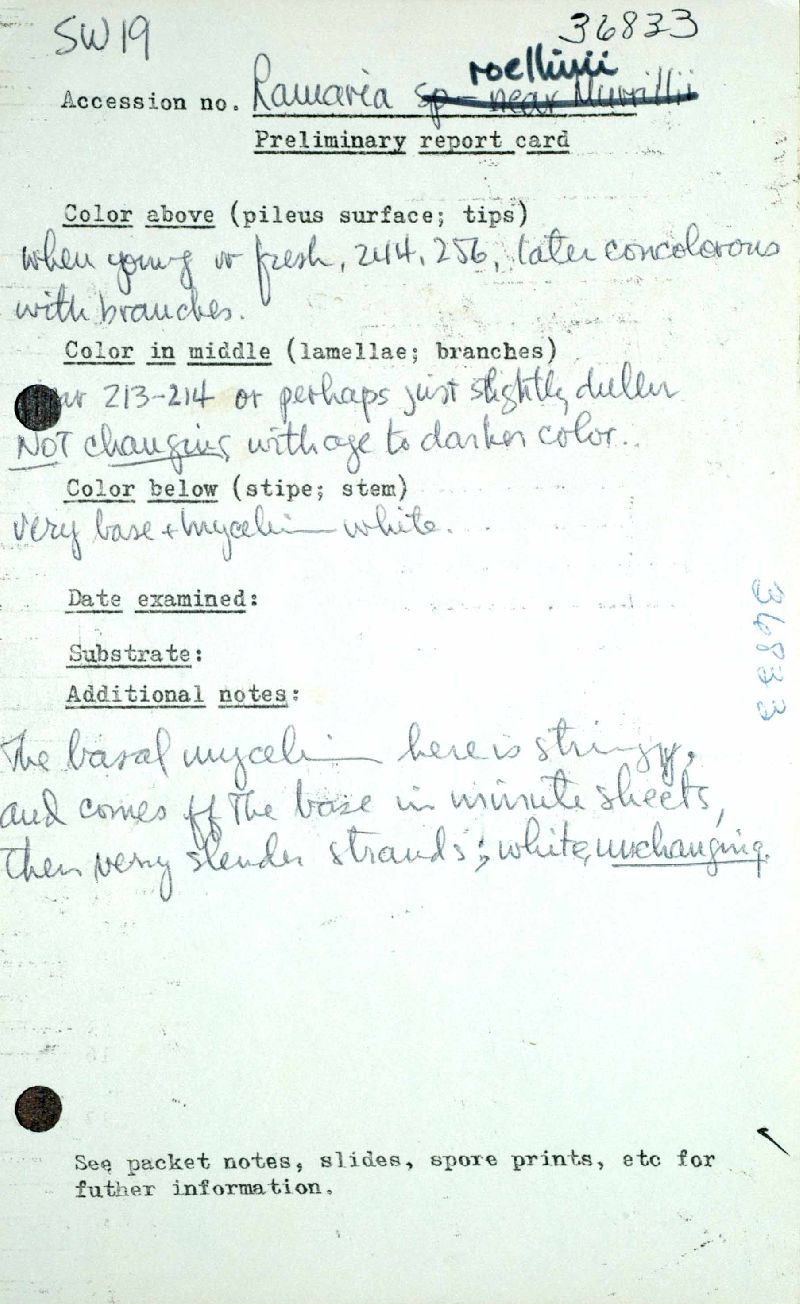 SW19
36833
Accession no. Ramaria sp - near Murrillii roellinii
Preliminary report card
Color above (pileus surface; tips)
when young or fresh, 244, 256, later concolorous
with branches.
Color in middle (lamellae; branches)
213-214 or perhaps just slightly duller
NOT changing with age to darker color..
Color below (stipe; stem)
very base + mycelium white.
Date examined:
Substrate:
Additional notes:
36833
The basal mycelium here is stringy,
and comes off the base in minute sheets,
then very slender strands; white, unchanging.
See packet notes, slides, spore prints, etc for
futher information.